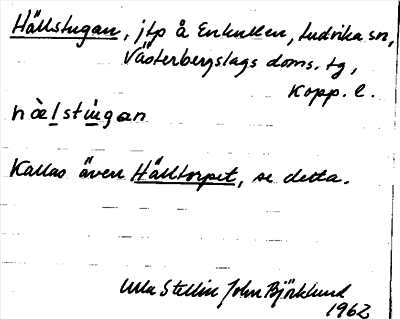 Hällstugan, jtp å Enkullen, Ludvika sn,
Västerbergslags doms. tg,
Kopp. l.
hä̀lstúgan
Kallas även Hälltorpet, se detta.
Ulla Stellin John Björklund
1962